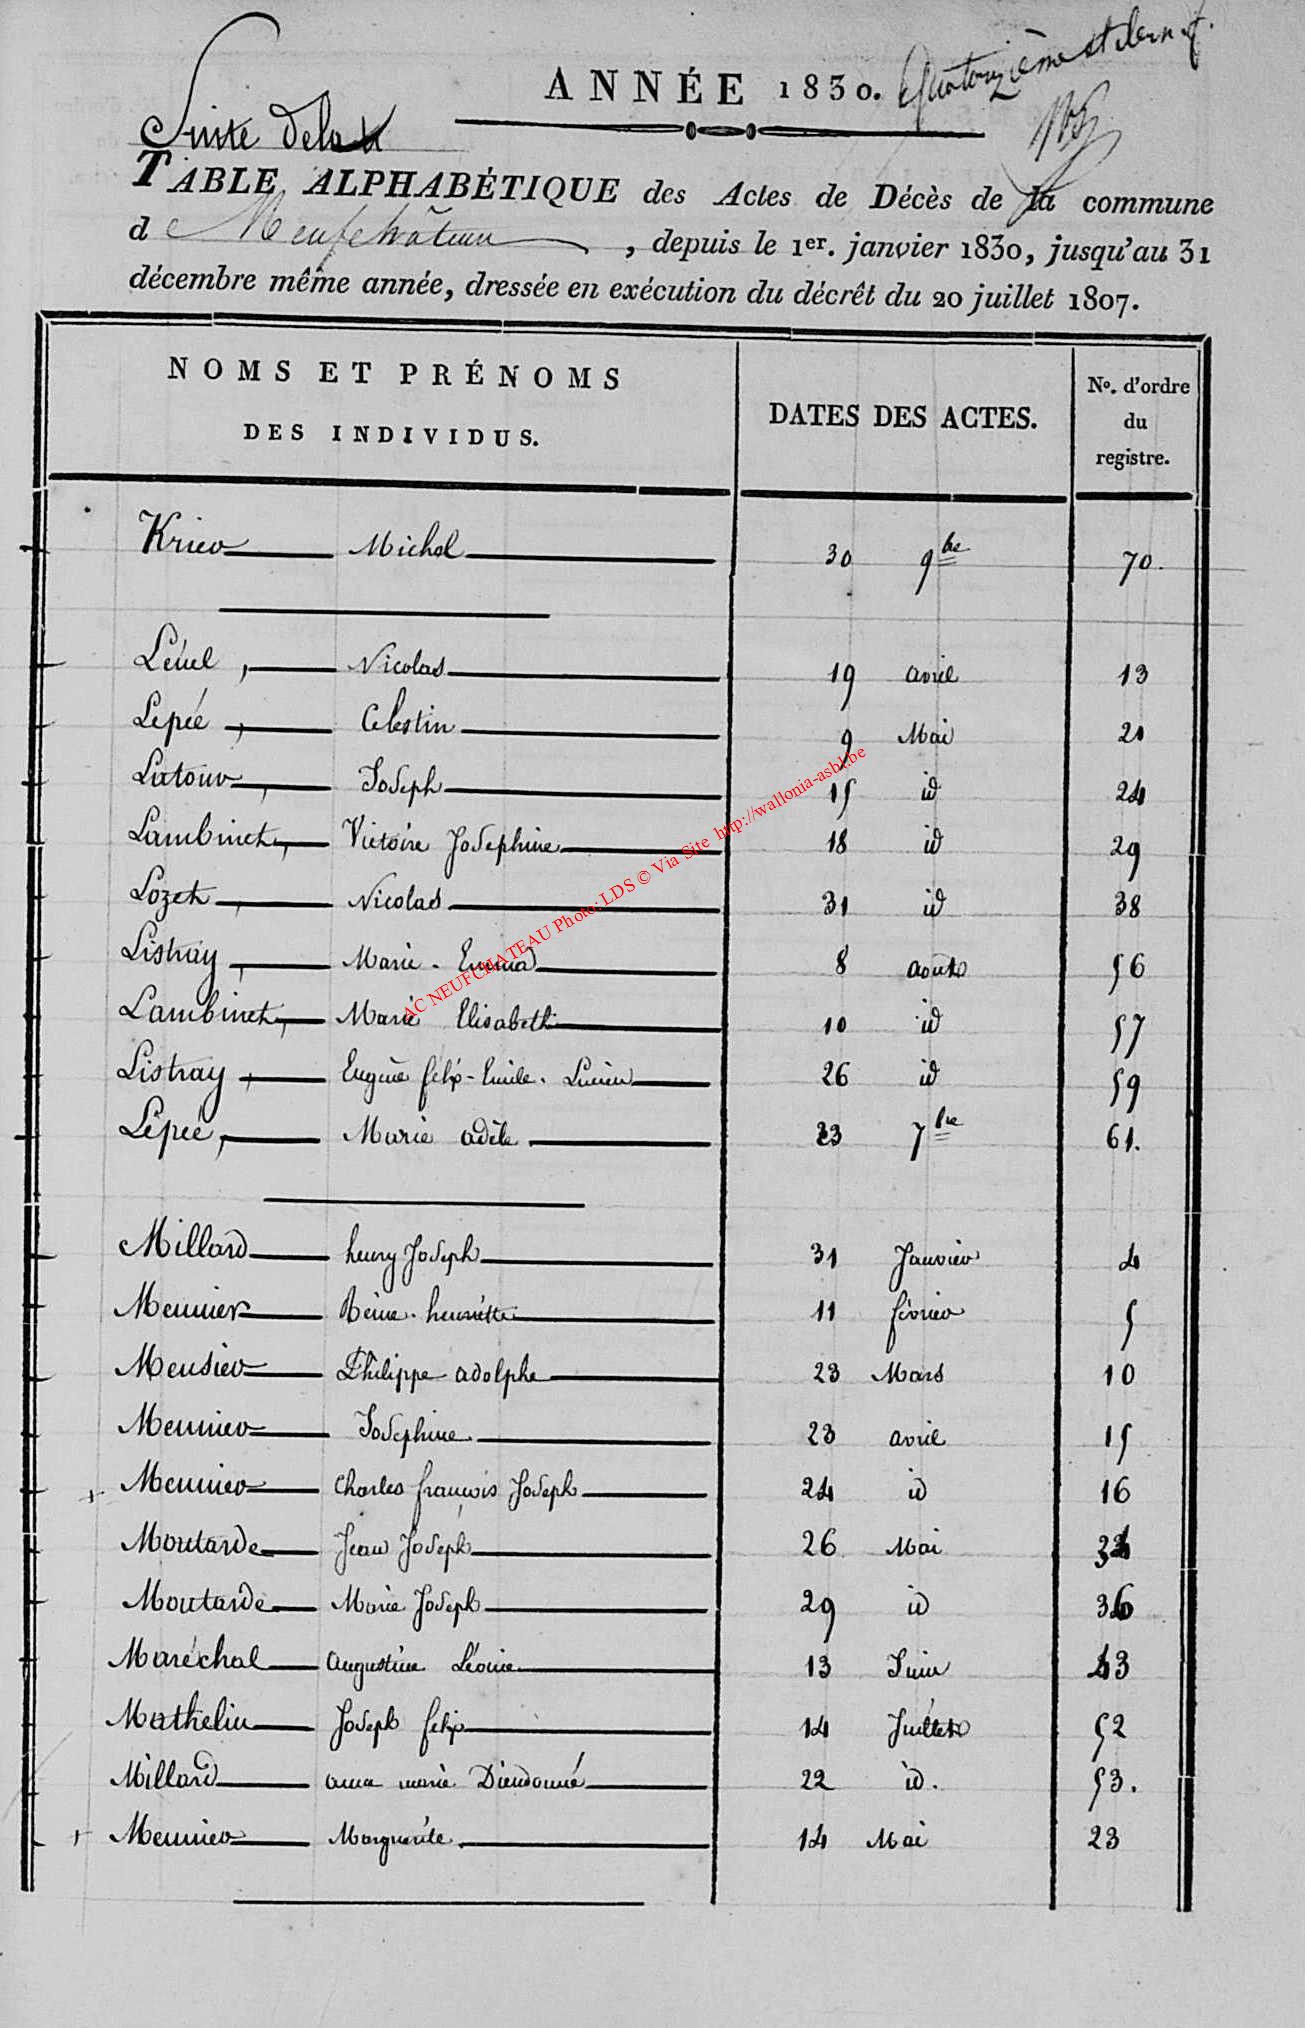 Quatorzième et der.f.
ANNÉE 1830.
Suite de la
TABLE ALPHABÉTIQUE des Actes de Décès de la commune
de Neufchâteau, depuis le 1er. janvier 1830, jusqu'au 31
décembre même année, dressée en exécution du décrêt du 20 juillet 1807.
NOMS ET PRÉNOMS DES INDIVIDUS. DATES DES ACTES. No. d'ordre du registre.
Krier Michel 30 9bre 70.
Nicolas 19 avril 13
Lepée, Celestin 9 Mai 21
Latour, Joseph 15 id 24
Lambinet, Victoire Josephine 18 id 29
Lozet, Nicolas 31 id 38
Listray, Marie - Emma 8 aout 56
Lambinet, Marie Elisabeth 10 id 57
Listray, Eugène félix - Emile. Lucien 26 id 59
Lepée, Marie adèle 23 7bre 61.
Millard henry Joseph 31 Janvier 4
Meunier Reine. henriette 11 février 5
Meusier Philippe adolphe 23 Mars 10
Meunier Josephine. 23 avril 15
Meunier Charles françois Joseph 24 id 16
Moutarde Jean Joseph 26 Mai
Moutarde Marie Joseph 29 id 36
Maréchal augustine Léonie 13 Juin 43
Mathelin Joseph felix 14 Juillet 52
Millard anna marie Dieudonné 22 id. 53.
Meunier Marguerite. 14 Mai 23
AC NEUFCHATEAU Photo: LDS © Via Site http://wallonia-asbl.be